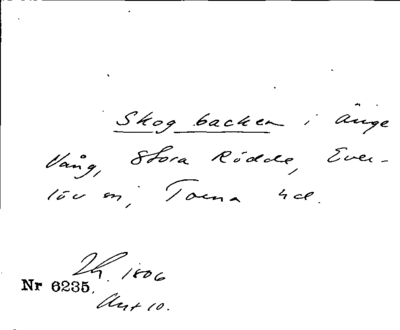 Skog backen i Änge
Vång, Stora Rödde, Ever-
löv sn, Torna hd.
Lh. 1806
Nr 6235.
Akt 10.